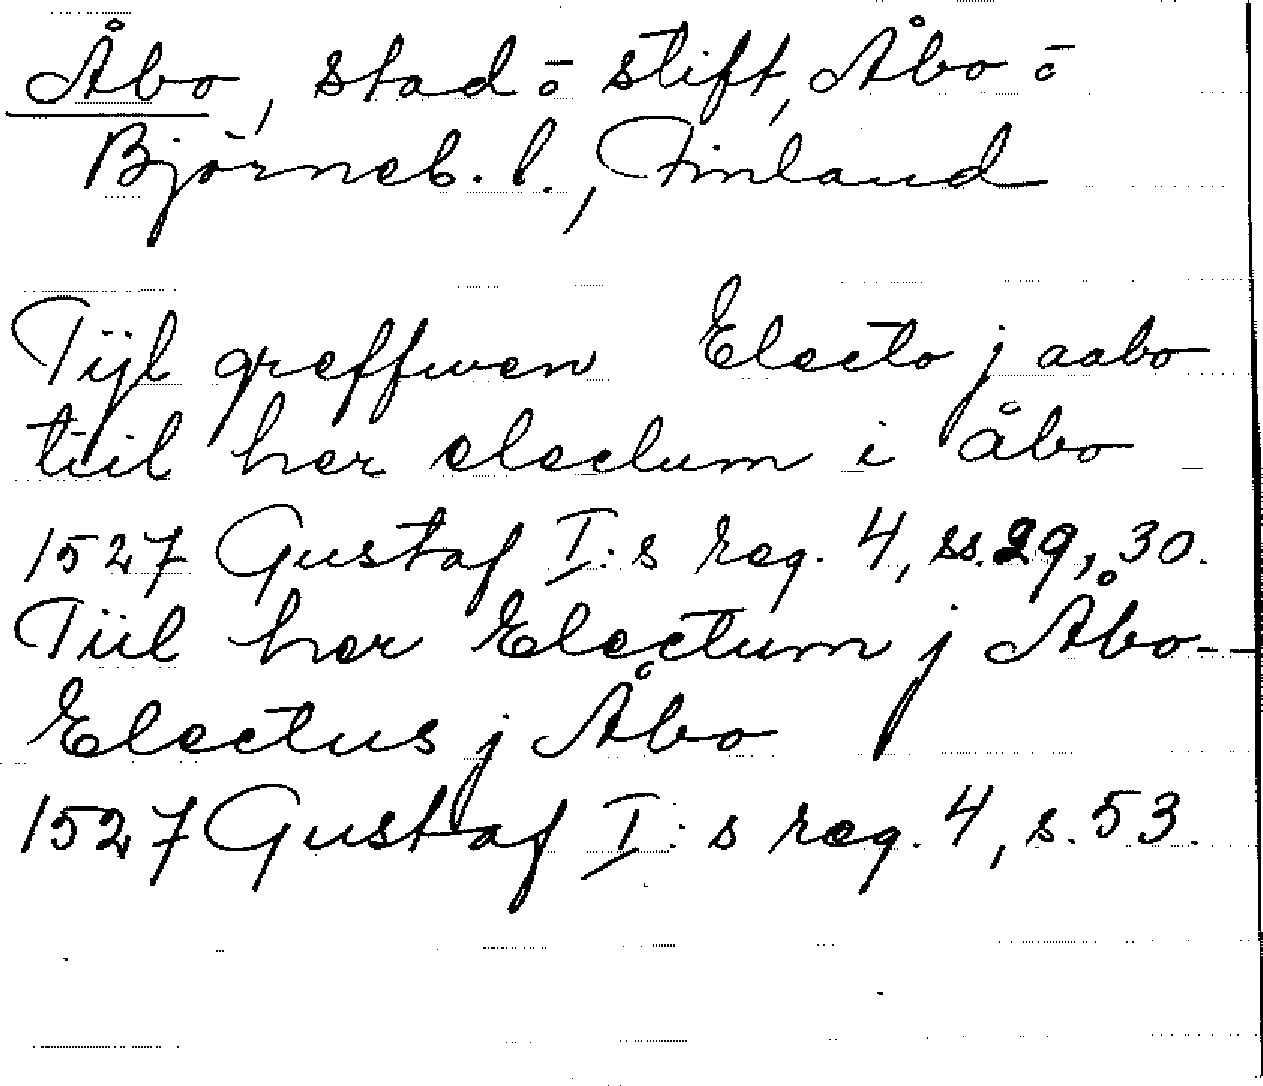 Åbo, stad o stift, Åbo o
Björneb. l., Finland
Tijl greffwen Electo j aabo
tiil her electum i åbo
1527 Gustaf I:s reg. 4, ss. 29, 30.
Tiil her Electum j Åbo--
Electus j Åbo
1527 Gustaf I:s reg. 4, s. 53.